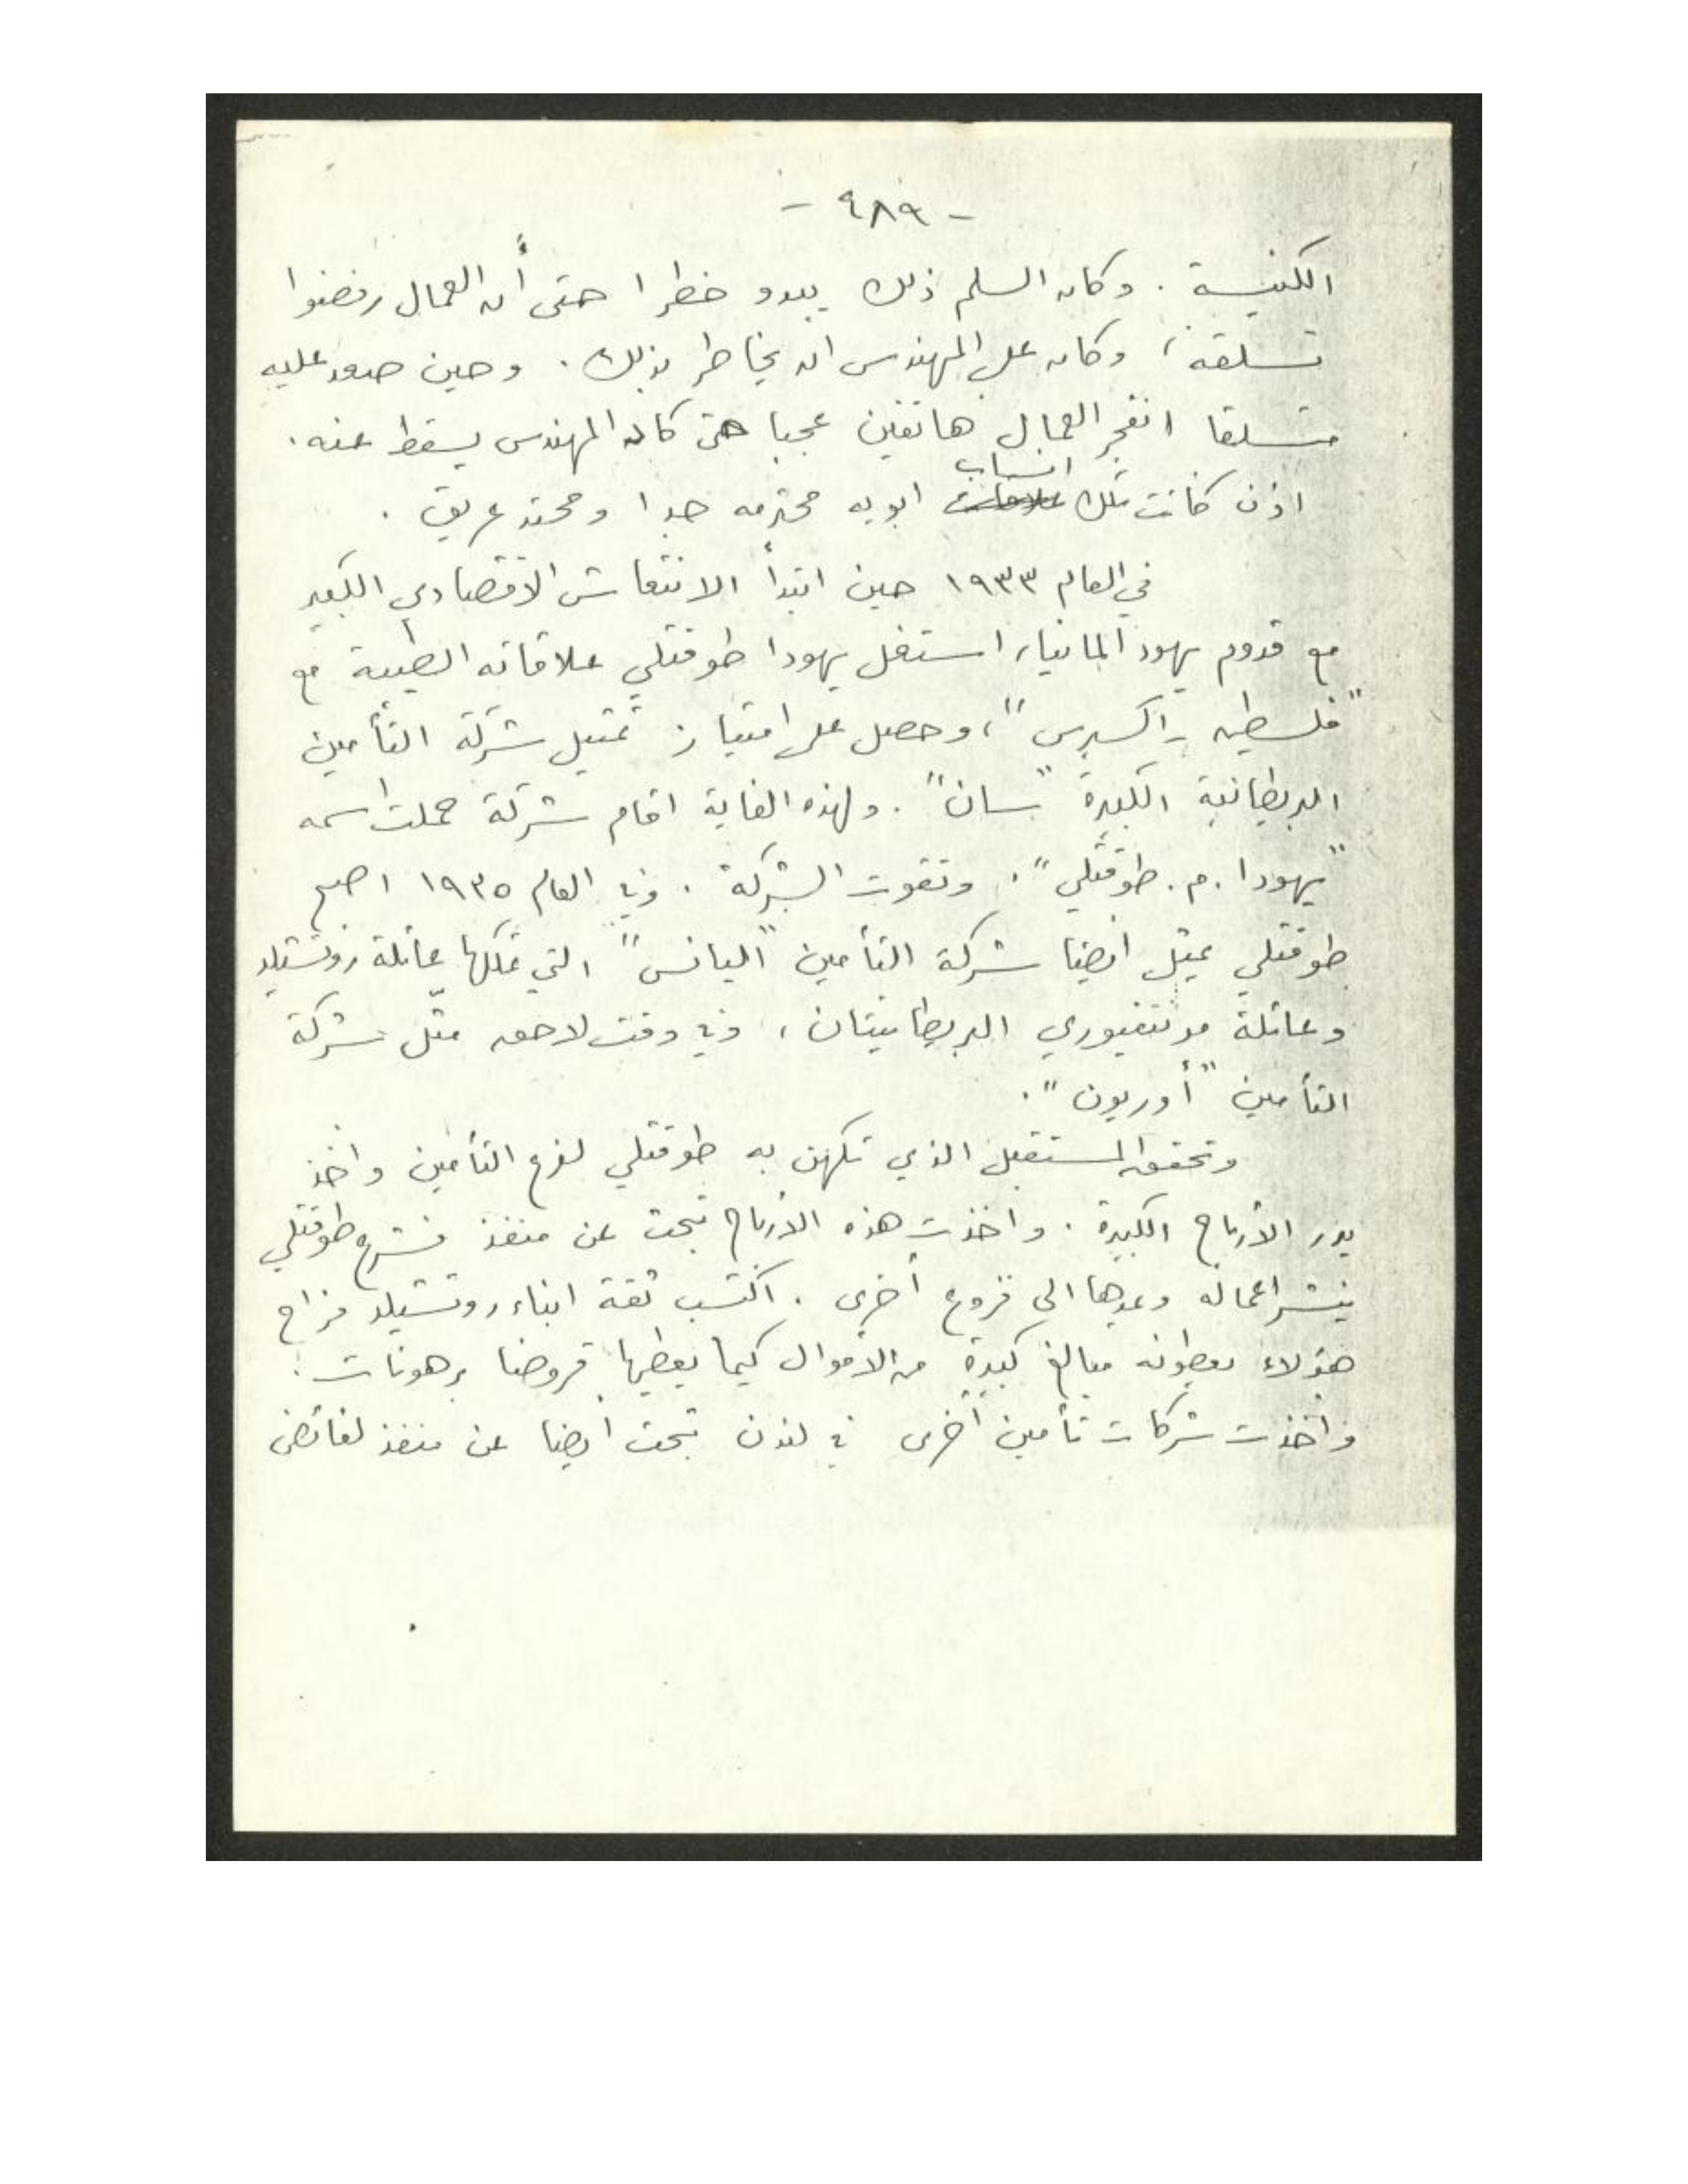 - ٤٨٩ -
الكنيسة . وكان السلم ذلك يبدو خطرا حتى أن العمال رفضوا
تسلقه ، وكان على المهندس ان يخاطر بذلك . وحين صعد عليه
متسلقا انفجر العمال هاتفين عجبا حتى كاد المهندس يسقط عنه .
انساب
اذن كانت تلك علاقات ابويه محترمه جدا ومحتد عريق .
في العام ١٩٣٣ حين ابتدأ الانتعاش الاقتصادي الكبير
مع قدوم يهود المانيا، استغل يهودا طوقتلي علاقاته الطيبة مع
"فلسطين - اكسبرس" ، وحصل على امتياز تمثيل شركة التأمين
البريطانية الكبيرة "سان" . ولهذه الغاية اقام شركة حملت اسمه
"يهودا . م . طوقتلي" . وتقوت الشركة . وفي العام ١٩٣٥ اصبح
طوقتلي يمثل ايضا شركة التأمين "اليانس" التي تملكها عائلة روتشيلد
وعائلة مونتفيوري البريطانيتان ، وفي وقت لاحق مثّل شركة
التأمين "أوريون" .
وتحقق المستقبل الذي تكهن به طوقتلي لفرع التأمين واخذ
يدر الأرباح الكبيرة . واخذت هذه الأرباح تبحث عن منفذ فشرع طوقتلي
ينشر اعماله ويمدها الى فروع أخرى . اكتسب ثقة ابناء روتشيلد فراح
هؤلاء يعطونه مبالغ كبيرة من الأموال كيما يعطيها قروضا برهونات .
وأخذت شركات تأمين أخرى في لندن تبحث ايضا عن منفذ لفائض